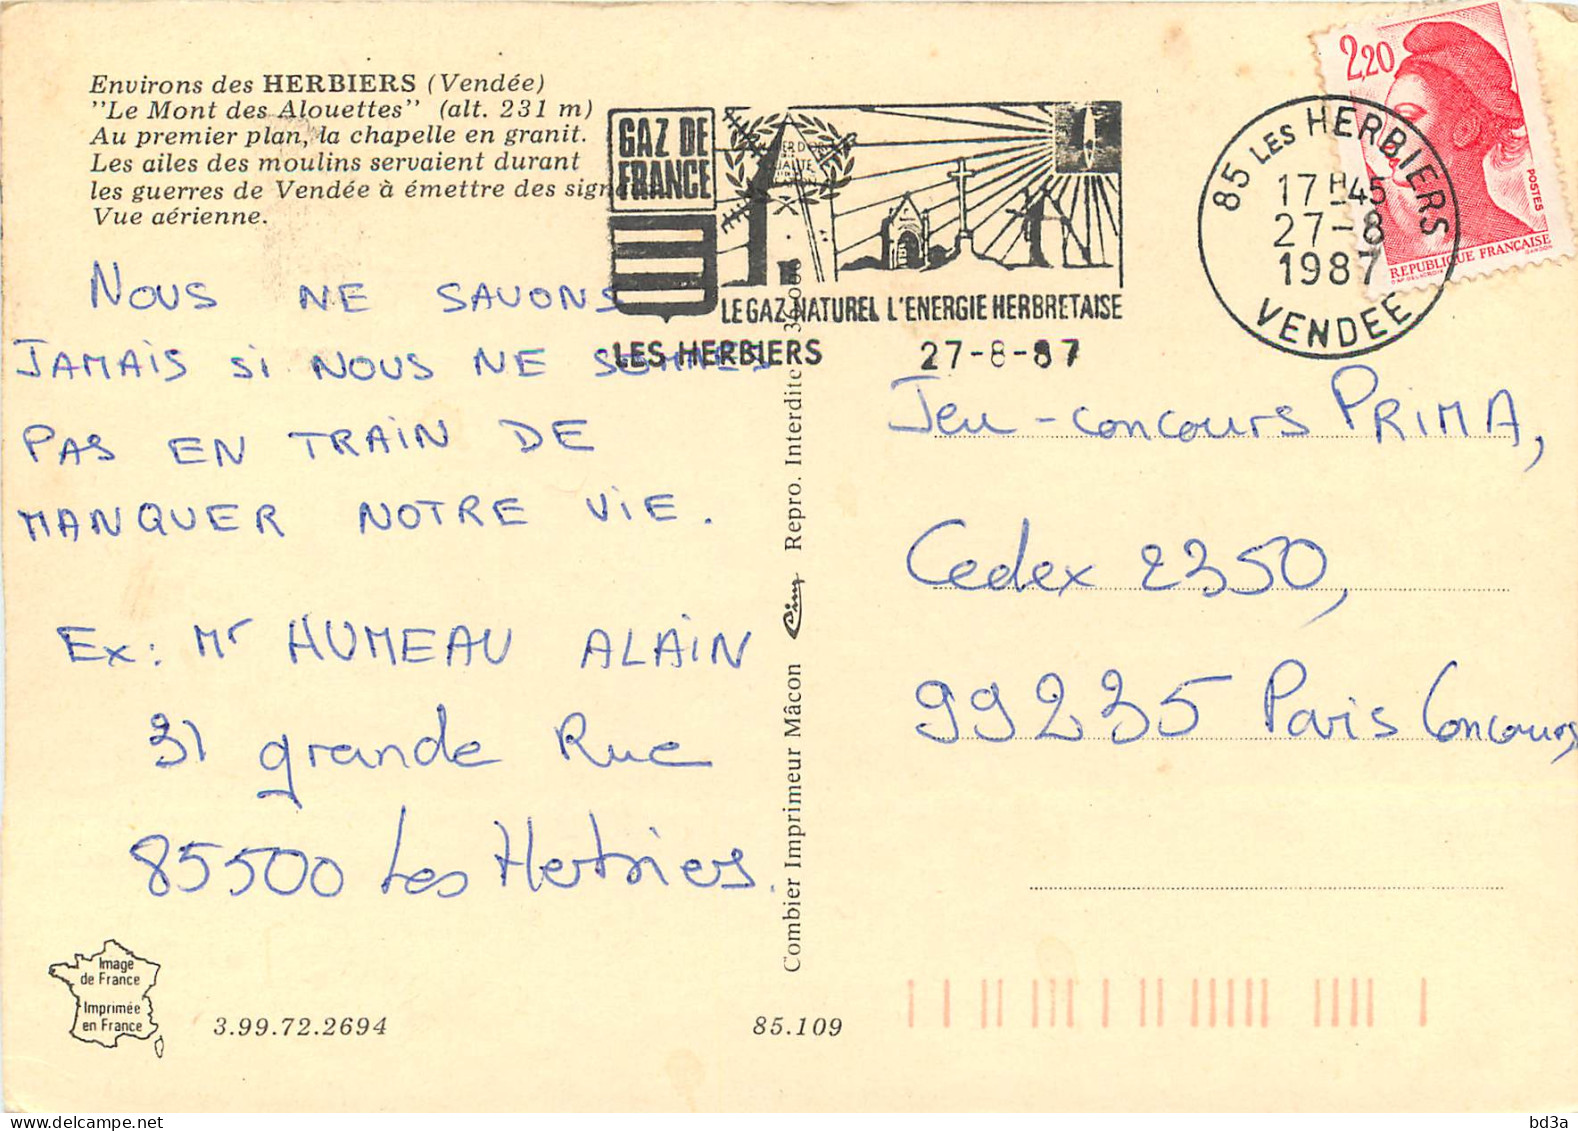 Environs des HERBIERS (Vendée)
"Le Mont des Alouettes" (alt. 231 m)
Au premier plan, la chapelle en granit.
Les ailes des moulins servaient durant
les guerres de Vendée à émettre des
Vue aérienne.
GAZ DE
FRANCE
LE GAZ NATUREL L'ENERGIE HERBRETAISE
LES HERBIERS 27-8-87
85 LES HERBIERS
17H45
27-8
1987
VENDEE
2,20
POSTES
REPUBLIQUE FRANÇAISE
NOUS NE SAVONS
JAMAIS SI NOUS NE SOMMES
PAS EN TRAIN DE
MANQUER NOTRE VIE.
Ex: Mr HUMEAU ALAIN
31 grande Rue
85500 Les Herbiers.
Jeu-concours PRIMA,
Cedex 2350,
99235 Paris Concours
Combier Imprimeur Mâcon Cim Repro. Interdite
Image
de France
Imprimée
en France
3.99.72.2694
85.109
bd3a